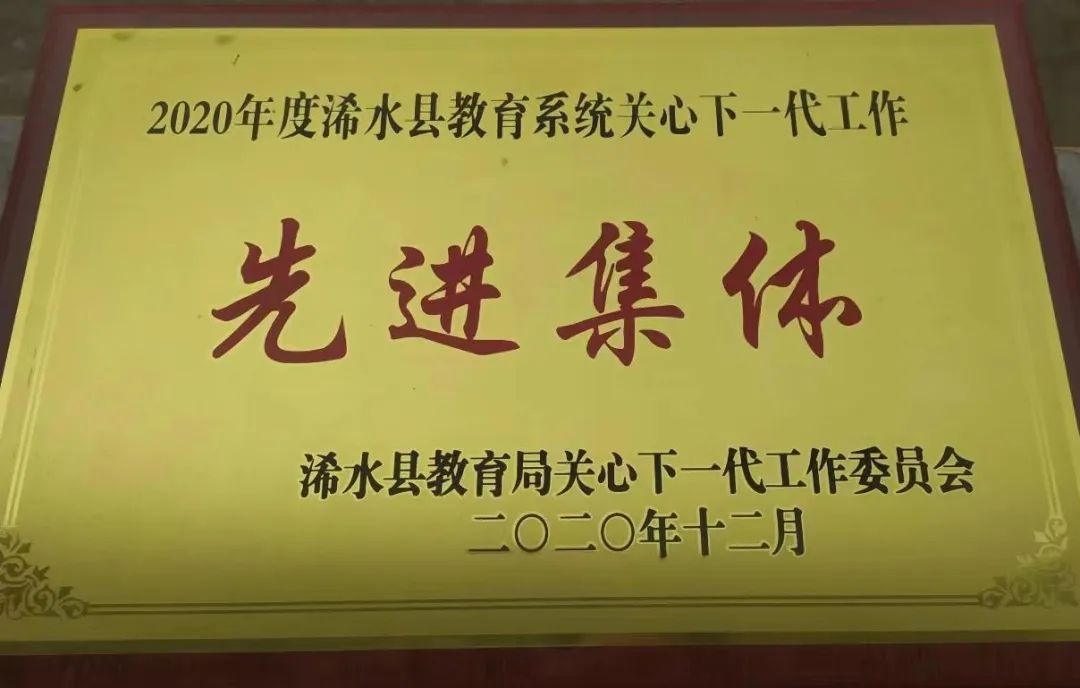 2020年度浠水县教育系统关心下一代工作
先进集体
浠水县教育局关心下一代工作委员会
二〇二〇年十二月